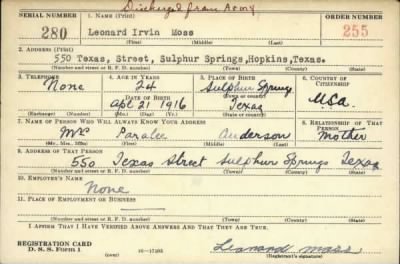 Discharged from Army
SERIAL NUMBER 1. NAME (Print) ORDER NUMBER
280 Leonard Irvin Moss 255
(First) (Middle) (Last)
2. ADDRESS (Print)
550 Texas, Street, Sulphur Springs,Hopkins,Texas.
(Number and street or R. F. D. number) (Town) (County) (State)
3. TELEPHONE 4. AGE IN YEARS 5. PLACE OF BIRTH 6. COUNTRY OF CITIZENSHIP
None 24 Sulphur Spring
DATE OF BIRTH (Town or county)
Apr. 21 1916 Texas USA
(Exchange) (Number) (Mo.) (Day) (Yr.) (State or country)
7. NAME OF PERSON WHO WILL ALWAYS KNOW YOUR ADDRESS 8. RELATIONSHIP OF THAT PERSON
Paralee Anderson Mother
(Mr., Mrs., Miss) (First) (Middle) (Last)
9. ADDRESS OF THAT PERSON
550 Texas Street Sulphur Springs Texas
(Number and street or R. F. D. number) (Town) (County) (State)
10. EMPLOYER'S NAME
None
11. PLACE OF EMPLOYMENT OR BUSINESS
(Number and street or R. F. D. number) (Town) (County) (State)
I AFFIRM THAT I HAVE VERIFIED ABOVE ANSWERS AND THAT THEY ARE TRUE.
REGISTRATION CARD
D. S. S. Form 1 (over) 16-17105 Leonard Moss
(Registrant's signature)